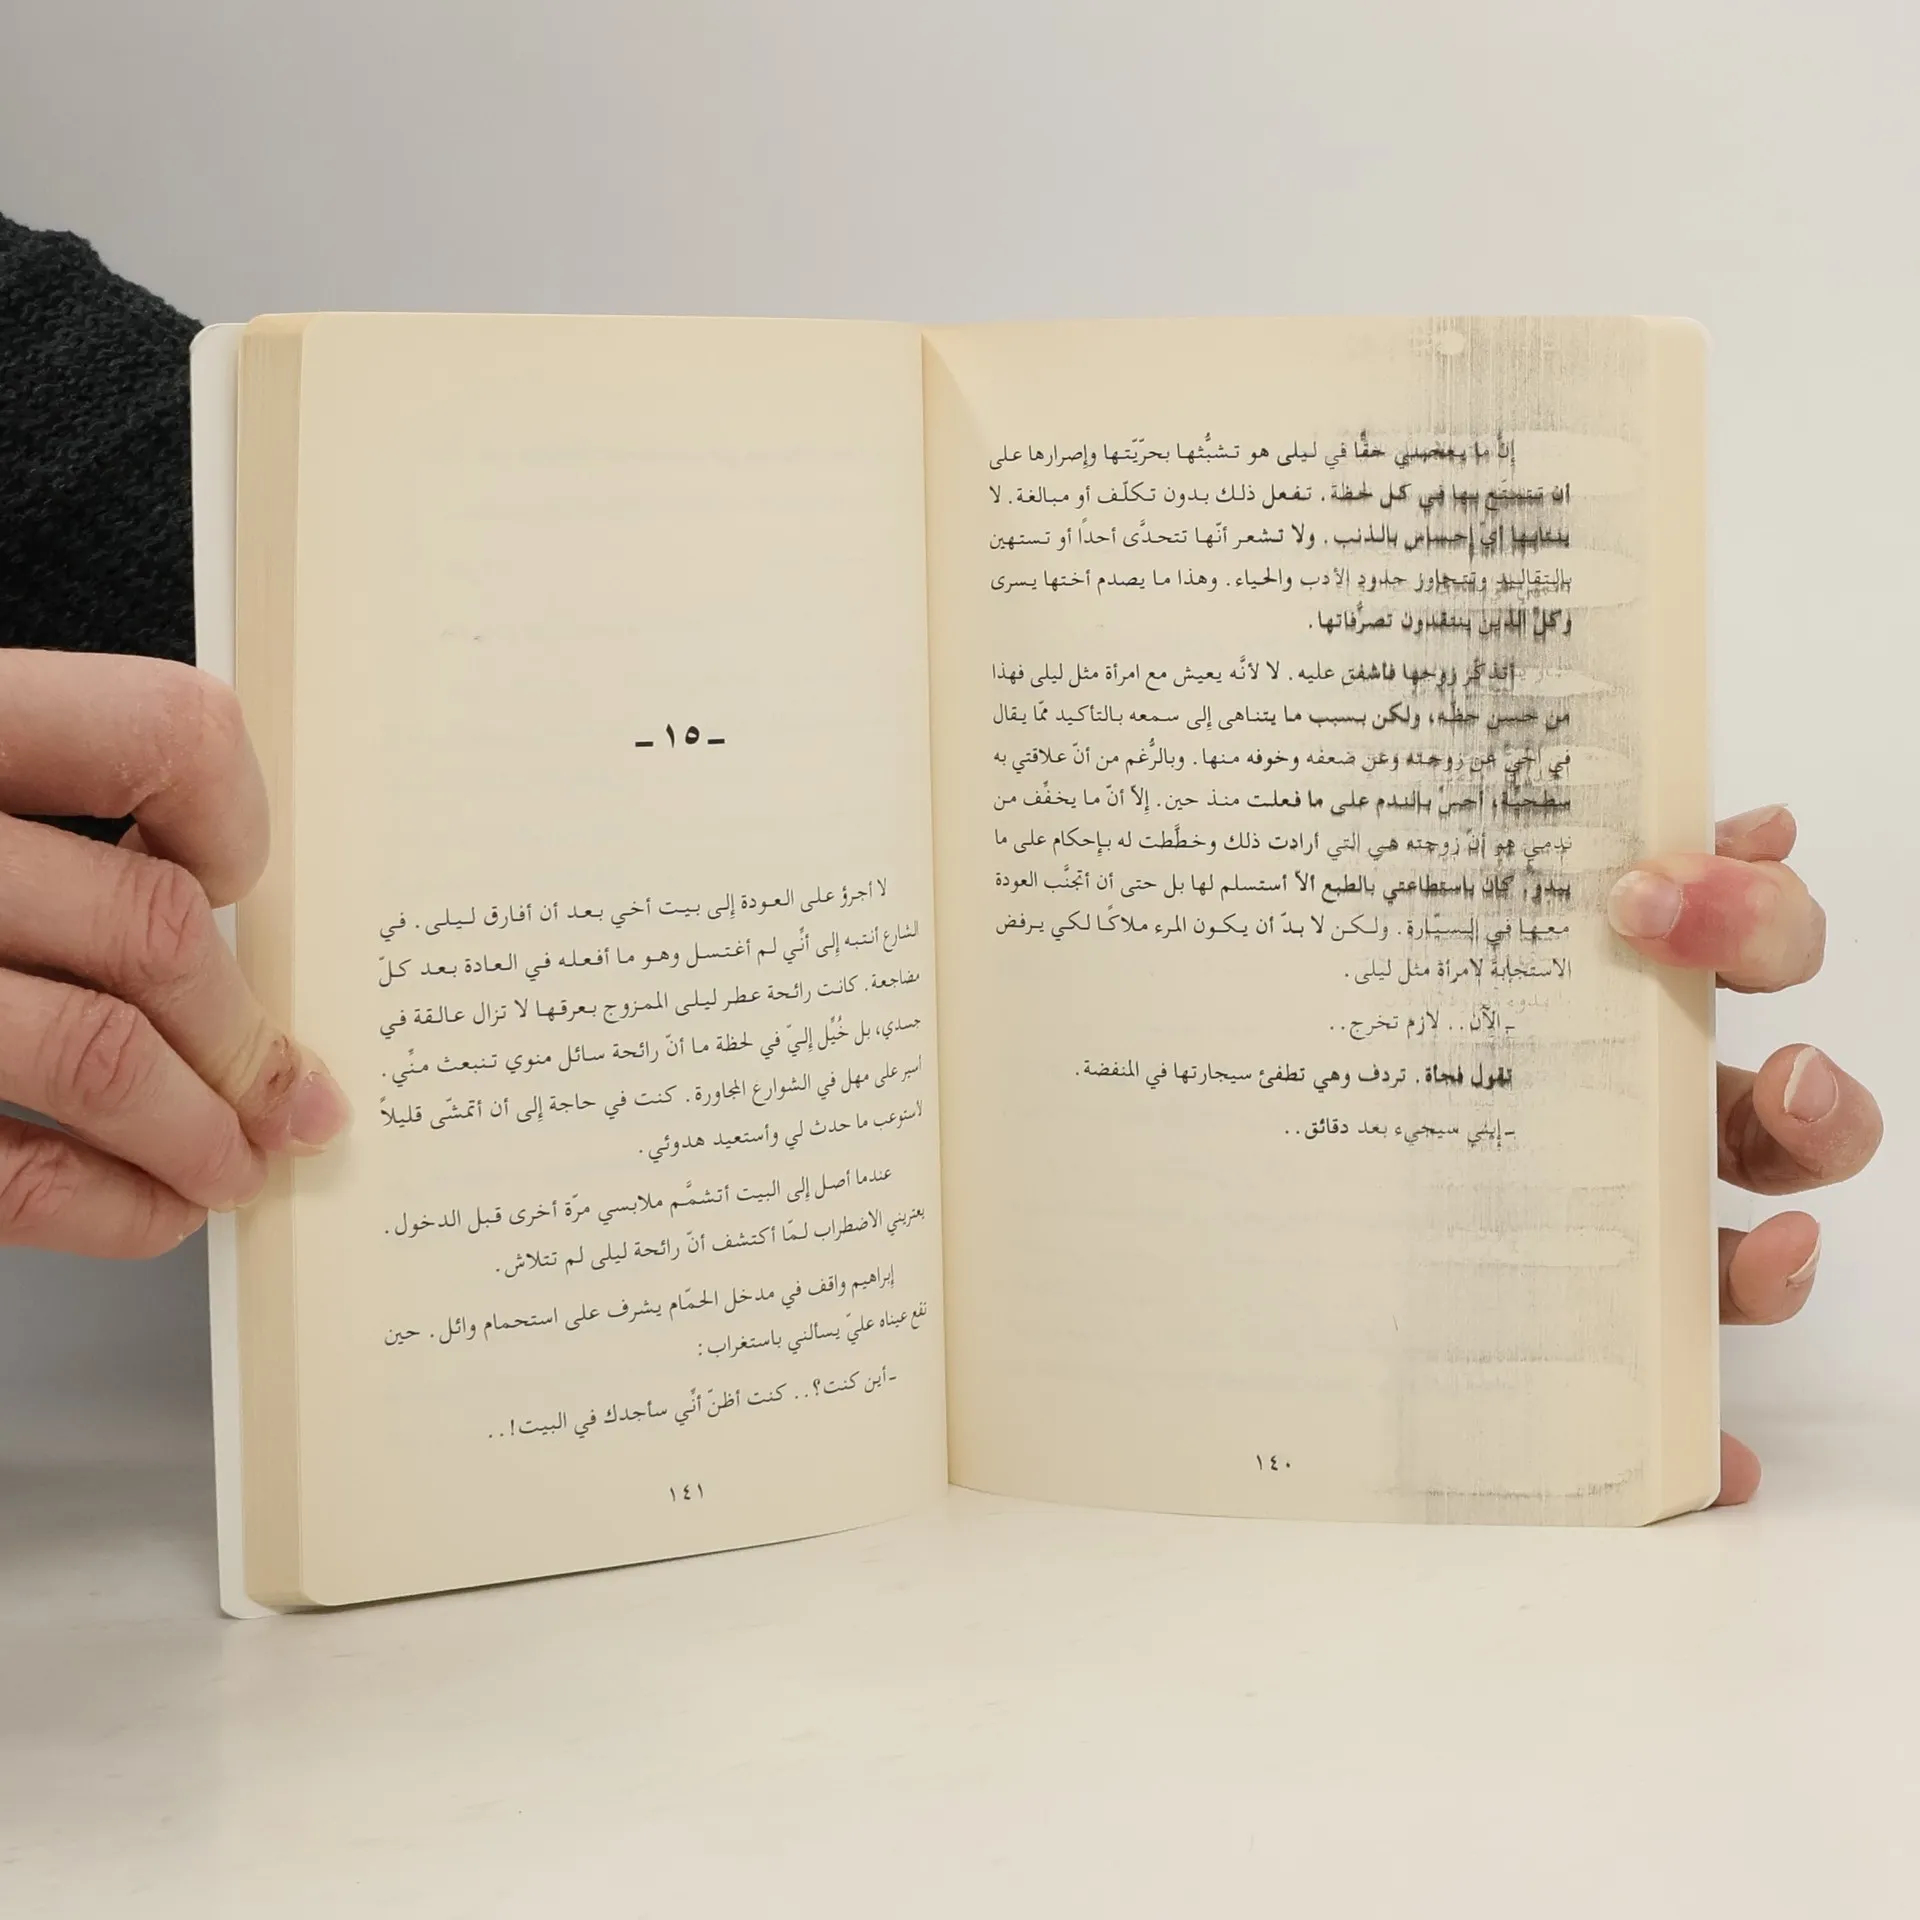 إنَّ ما يعجبني حقًّا في ليلى هو تشبُّثها بحرّيّتها وإصرارها على
أن تتمتّع بها في كل لحظة. تفعل ذلك بدون تكلّف أو مبالغة. لا
ينتابها أيّ إحساس بالذنب. ولا تشعر أنّها تتحدَّى أحداً أو تستهين
بالتقاليد وتتجاوز حدود الأدب والحياء. وهذا ما يصدم أختها يسرى
وكلّ الذين ينتقدون تصرُّفاتها.
أتذكّر زوجها فأشفق عليه. لا لأنَّه يعيش مع امرأة مثل ليلى فهذا
من حسن حظّه، ولكن بسبب ما يتناهى إلى سمعه بالتأكيد ممّا يقال
في الحيّ عن زوجته وعن ضعفه وخوفه منها. وبالرُّغم من أنّ علاقتي به
سطحيّة، أحسّ بالندم على ما فعلت منذ حين. إلاّ أنّ ما يخفّف من
ندمي هو أنّ زوجته هي التي أرادت ذلك وخطَّطت له بإحكام على ما
يبدو. كان باستطاعتي بالطبع ألاّ أستسلم لها بل حتى أن أتجنَّب العودة
معها في السيّارة. ولكن لا بدّ أن يكون المرء ملاكًا لكي يرفض
الاستجابة لامرأة مثل ليلى.
ـ الآن.. لازم تخرج..
تقول فجأة. تردف وهي تطفئ سيجارتها في المنفضة.
ـ إبني سيجيء بعد دقائق..
١٤٠
ـ ١٥ ـ
لا أجرؤ على العودة إلى بيت أخي بعد أن أفارق ليلى. في
الشارع أنتبه إلى أنّي لم أغتسل وهو ما أفعله في العادة بعد كلّ
مضاجعة. كانت رائحة عطر ليلى الممزوج بعرقها لا تزال عالقة في
جسدي، بل خُيِّل إليّ في لحظة ما أنّ رائحة سائل منوي تنبعث منِّي.
أسير على مهل في الشوارع المجاورة. كنت في حاجة إلى أن أتمشّى قليلاً
لأستوعب ما حدث لي وأستعيد هدوئي.
عندما أصل إلى البيت أتشمَّم ملابسي مرّة أخرى قبل الدخول.
يعتريني الاضطراب لمّا أكتشف أنّ رائحة ليلى لم تتلاش.
إبراهيم واقف في مدخل الحمّام يشرف على استحمام وائل. حين
تقع عيناه عليّ يسألني باستغراب:
ـ أين كنت؟.. كنت أظنّ أنِّي سأجدك في البيت!..
١٤١